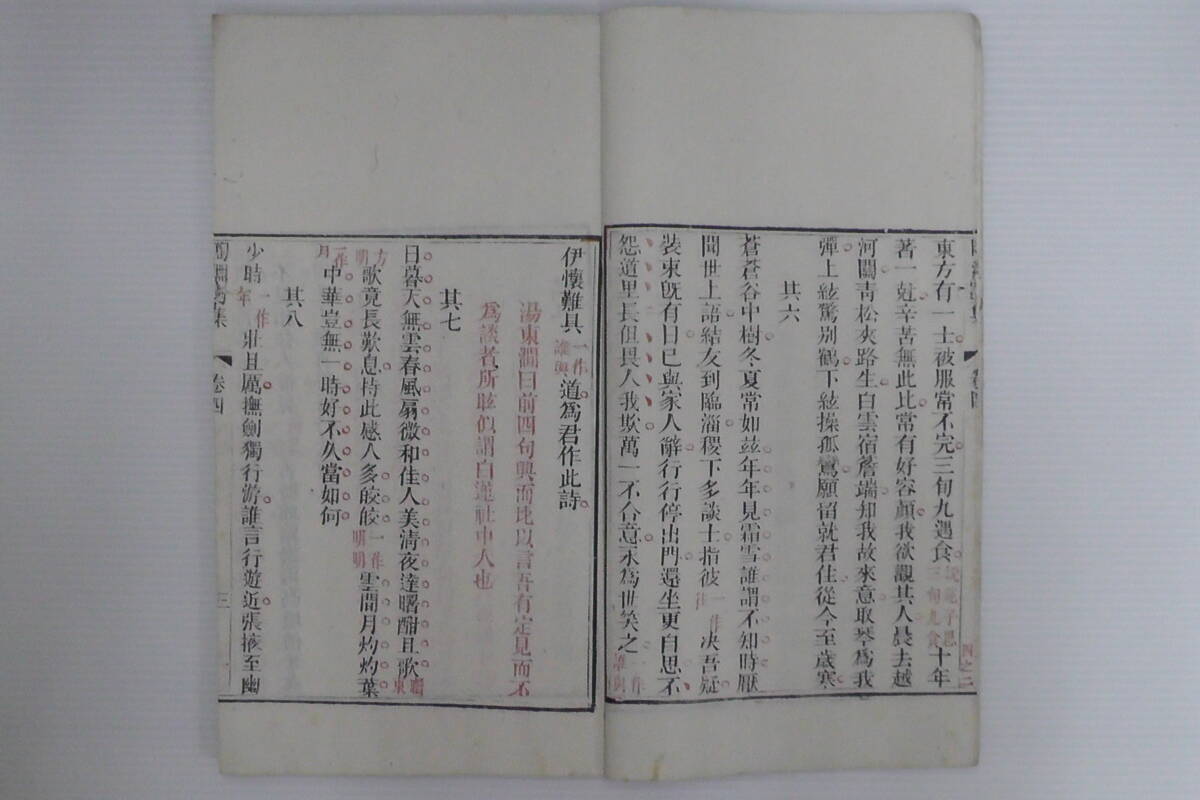 東方有一士被服常不完三旬九遇食說苑子思三旬九食十年
著一冠辛苦無此比常有好容顏我欲觀其人晨去越
河關青松夾路生白雲宿簷端知我故來意取琴為我
彈上絃驚別鶴下絃操孤鸞願留就君住從今至歲寒
其六
蒼蒼谷中樹冬夏常如玆年年見霜雪誰謂不知時厭
聞世上語結友到臨淄稷下多談士指彼一作決吾疑
裝束旣有日已與家人辭行行停出門還坐更自思不
怨道里長但畏人我欺萬一不合意永為世笑之一作
伊懷難具一作誰與道爲君作此詩
湯東澗曰前四句興而比以言吾有定見而不
爲談者所眩似謂白蓮社中人也
其七
日暮天無雲春風扇微和佳人美淸夜達曙酣且歌
歌竟長歎息持此感人多皎皎一作明明雲間月灼灼葉
一作月中華豈無一時好不久當如何
其八
少時一作年壯且厲撫劍獨行游誰言行遊近張掖至幽
卷四
三